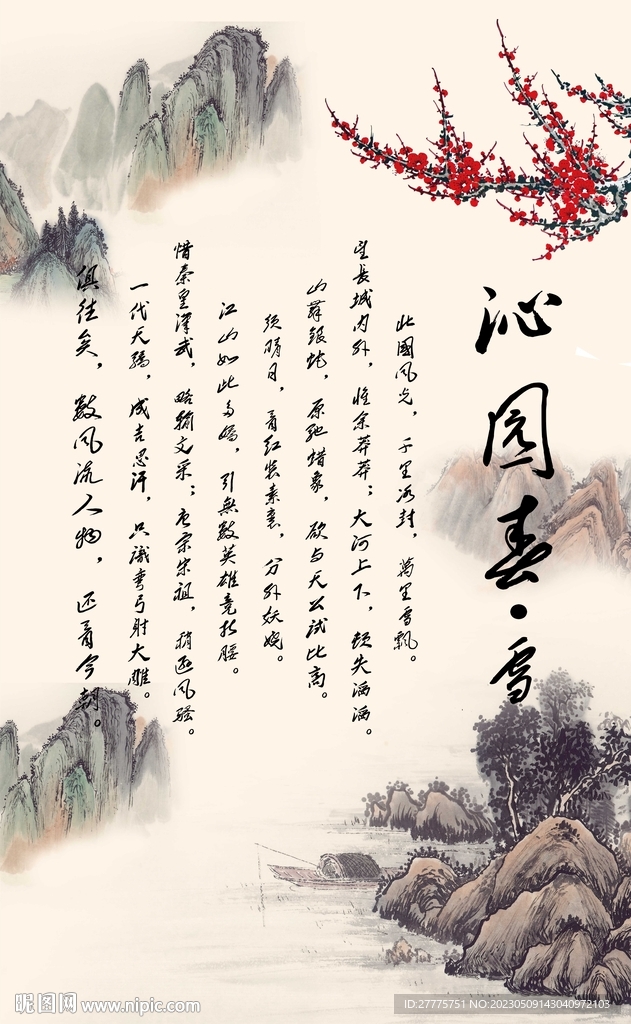 沁园春·雪
北國风光，千里冰封，萬里雪飘。
望長城内外，惟余莽莽；大河上下，顿失滔滔。
山舞银蛇，原驰蜡象，欲与天公试比高。
须晴日，看红装素裹，分外妖娆。
江山如此多娇，引無數英雄竞折腰。
惜秦皇漢武，略输文采；唐宗宋祖，稍逊风骚。
一代天骄，成吉思汗，只識弯弓射大雕。
俱往矣，數风流人物，还看今朝。
昵图网 www.nipic.com
ID:27775751 NO:20230509143040972103